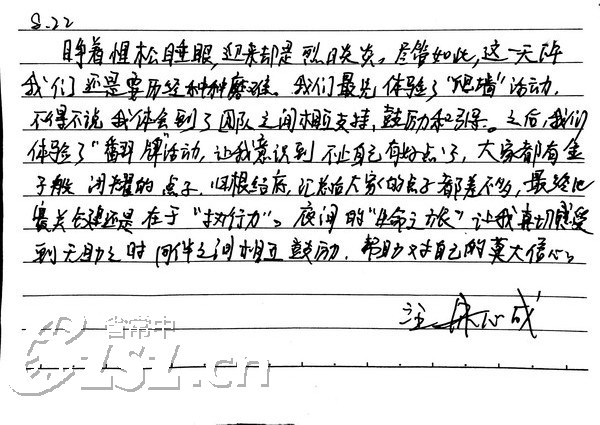 8.22
睁着惺松睡眼,迎来却是烈日炎炎。尽管如此,这一天
我们还是要历经种种磨难。我们最先体验了"爬墙"活动,
不得不说我体会到了团队之间相互支持、鼓励和引导。之后,我们
体验了"翻牌"活动,让我意识到不止自己有好点子,大家都有金
子般闪耀的点子,归根结底,汇总给大家的点子都差不多,最终
最关键还是在于"执行力"。夜间的"生命之旅"让我真切感受
到无助之时同伴之间相互鼓励,帮助对自己的莫大信心。
省常中
CZLSL.cn